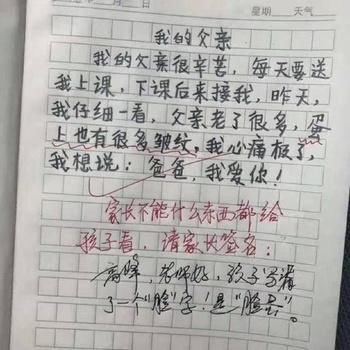 月 日 星期 天气
我的父亲
我的父亲很辛苦，每天要送
我上课，下课后来接我，昨天，
我仔细一看，父亲老了很多，蛋
上也有很多皱纹，我心痛极了，
我想说：爸爸，我爱你！
家长不能什么东西都给
孩子看，请家长签名：
老师好，孩子写漏
了一个"脸"字！是"脸蛋"。